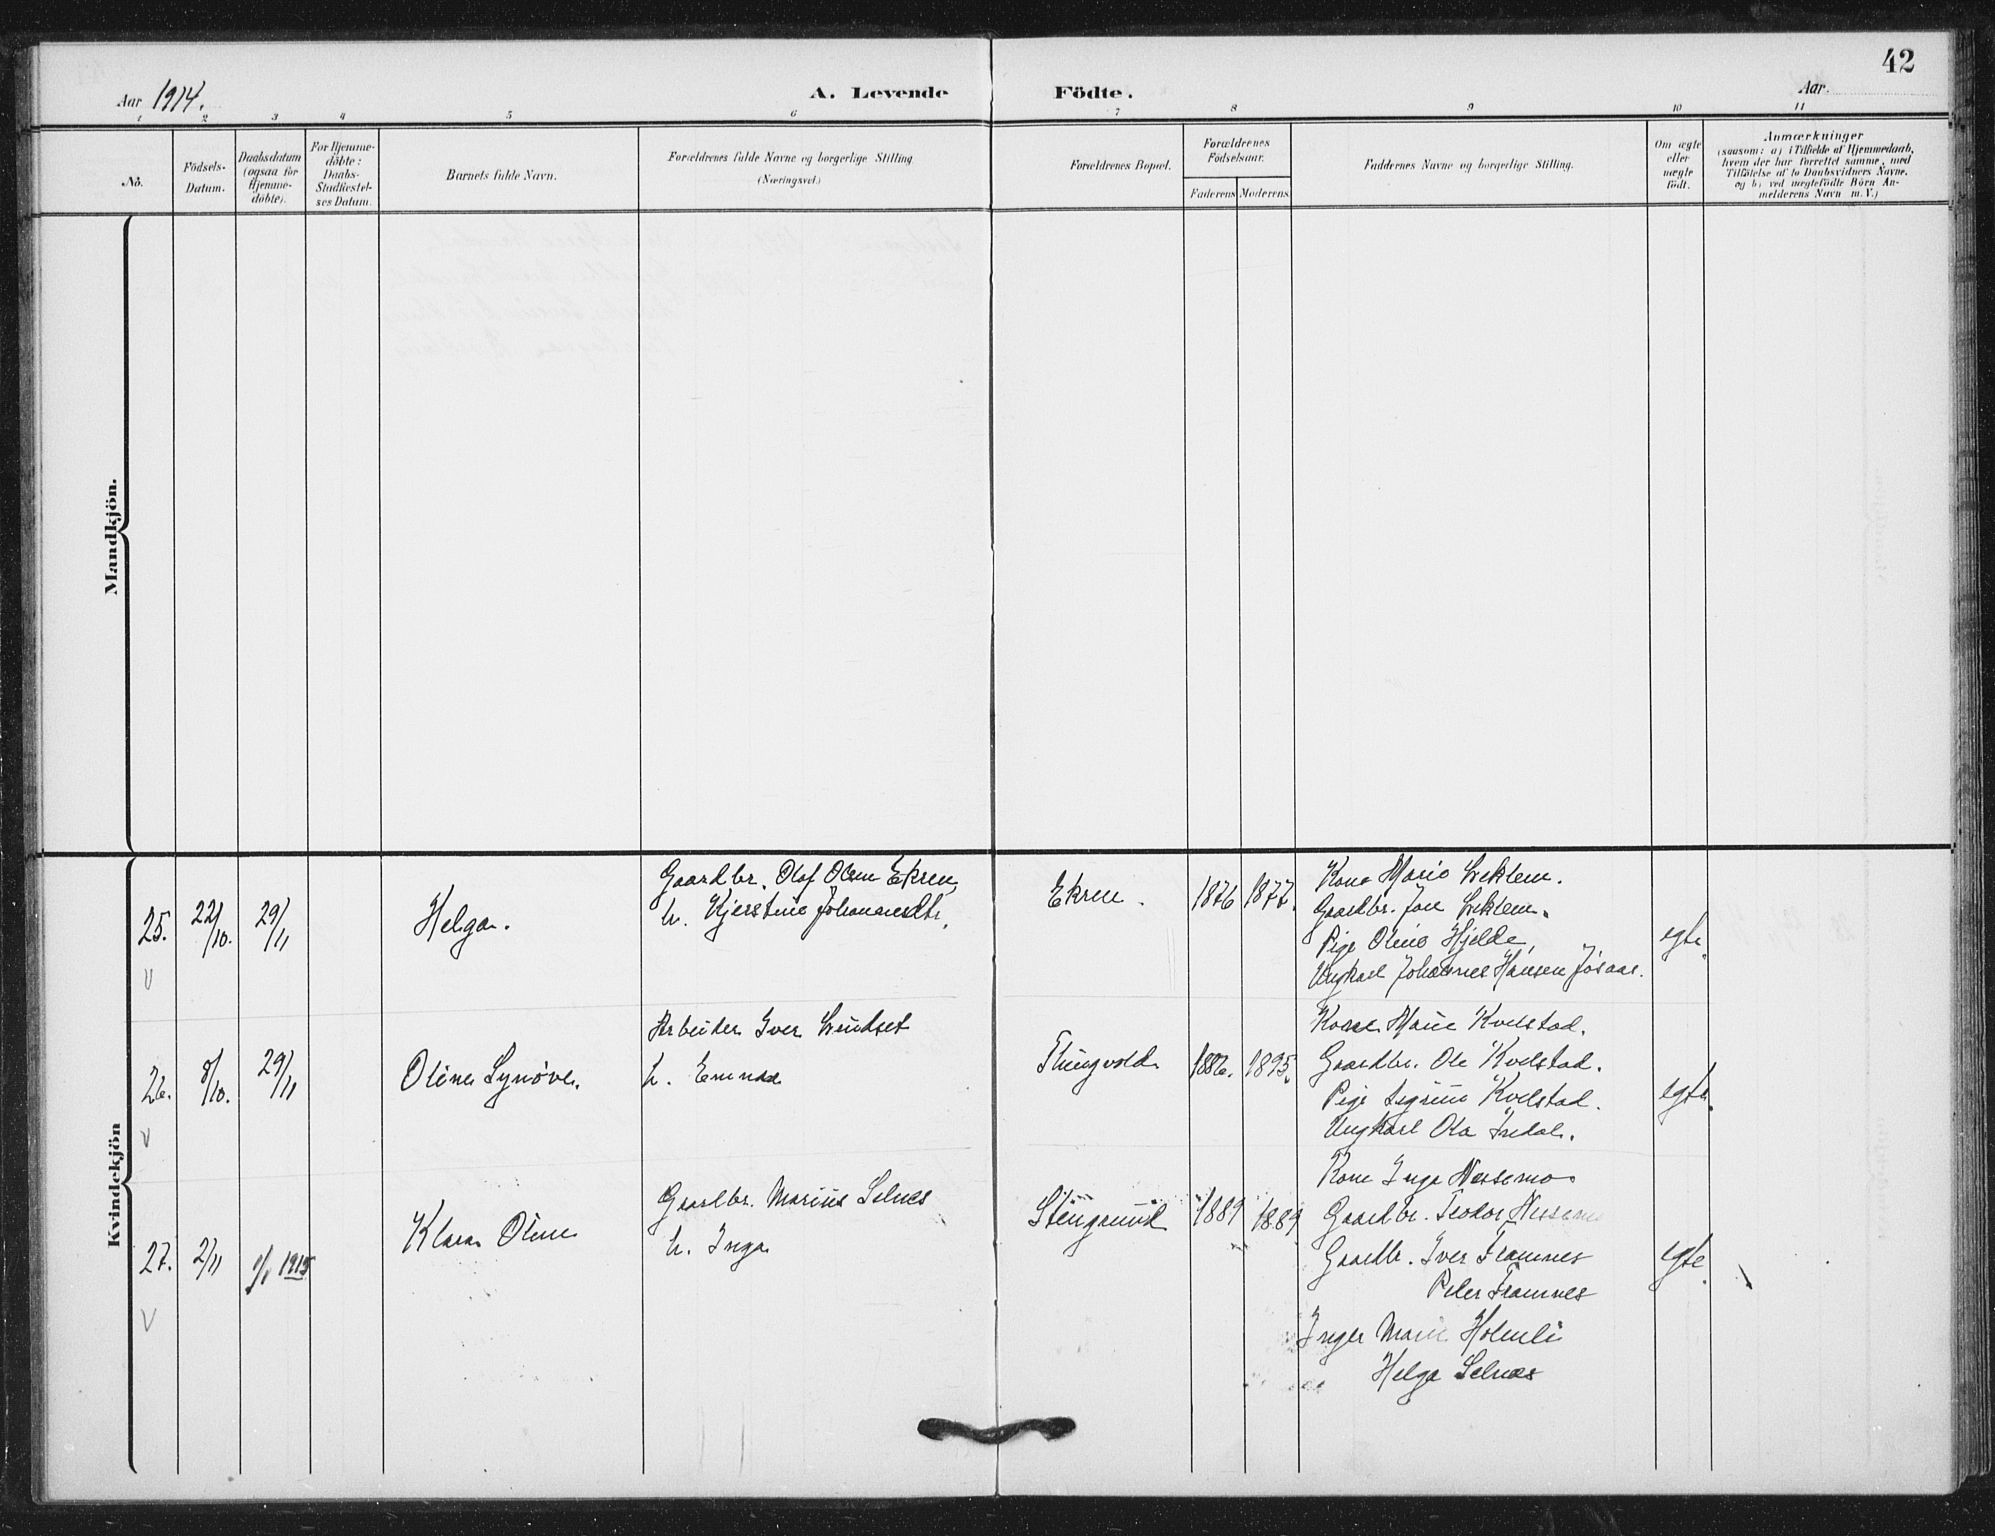 42
Aar 1914.
A. Levende Födte.
Aar.
1 2 3 4 5 6 7 8 9 10 11
No.
Födsels-
Datum.
Daabsdatum
(ogsaa for
Hjemme-
döbte).
For Hjemme-
döbte:
Daabs-
Stadfæstel-
ses Datum.
Barnets fulde Navn.
Forældrenes fulde Navne og borgerlige Stilling
(Næringsvei.)
Forældrenes Bopæl.
Forældrenes
Födselsaar.
Faderens Moderens
Faddernes Navne og borgerlige Stilling.
Om ægte
eller
uægte
födt.
Anmærkninger
(saasom: a) i Tilfælde af Hjemmedaab,
hvem der har forrettet samme, med
Tilföielse af to Daabsvidners Navne.
og b) ved uægtefödte Börn An-
melderens Navn m. V.)
Mandkjön.
Kvindekjön
25.
22/10.
29/11
Helga.
Gaardbr. Olaf Olsen Ekren,
h. Kjerstine Johannesdtr.
Ekren.
1876
1877.
Kone Marie Leklem.
Gaardbr. Jon Leklem.
Pige Oline Hjelde,
Ungkarl Johannes Hansen Jösaas.
egte.
26.
8/10.
29/11
Oline Synöve.
Arbeider Iver Lundset
h. Emma
Tingvold
1886.
1895.
Kone Marie Kvelstad.
Gaardbr. Ole Kvelstad.
Pige Sigrun Kvelstad.
Ungkarl Ola
egte.
27.
2/11
1/1 1915
Klara Oline
Gaardbr. Marius Selnes
h. Inga
1889
1889
Kone Inga Nessemo
Gaardbr. Teodor Nessemo
Gaardbr. Iver Framnes
Peter Framnes
Inger Marie Holmli
Helga Selnes
egte.